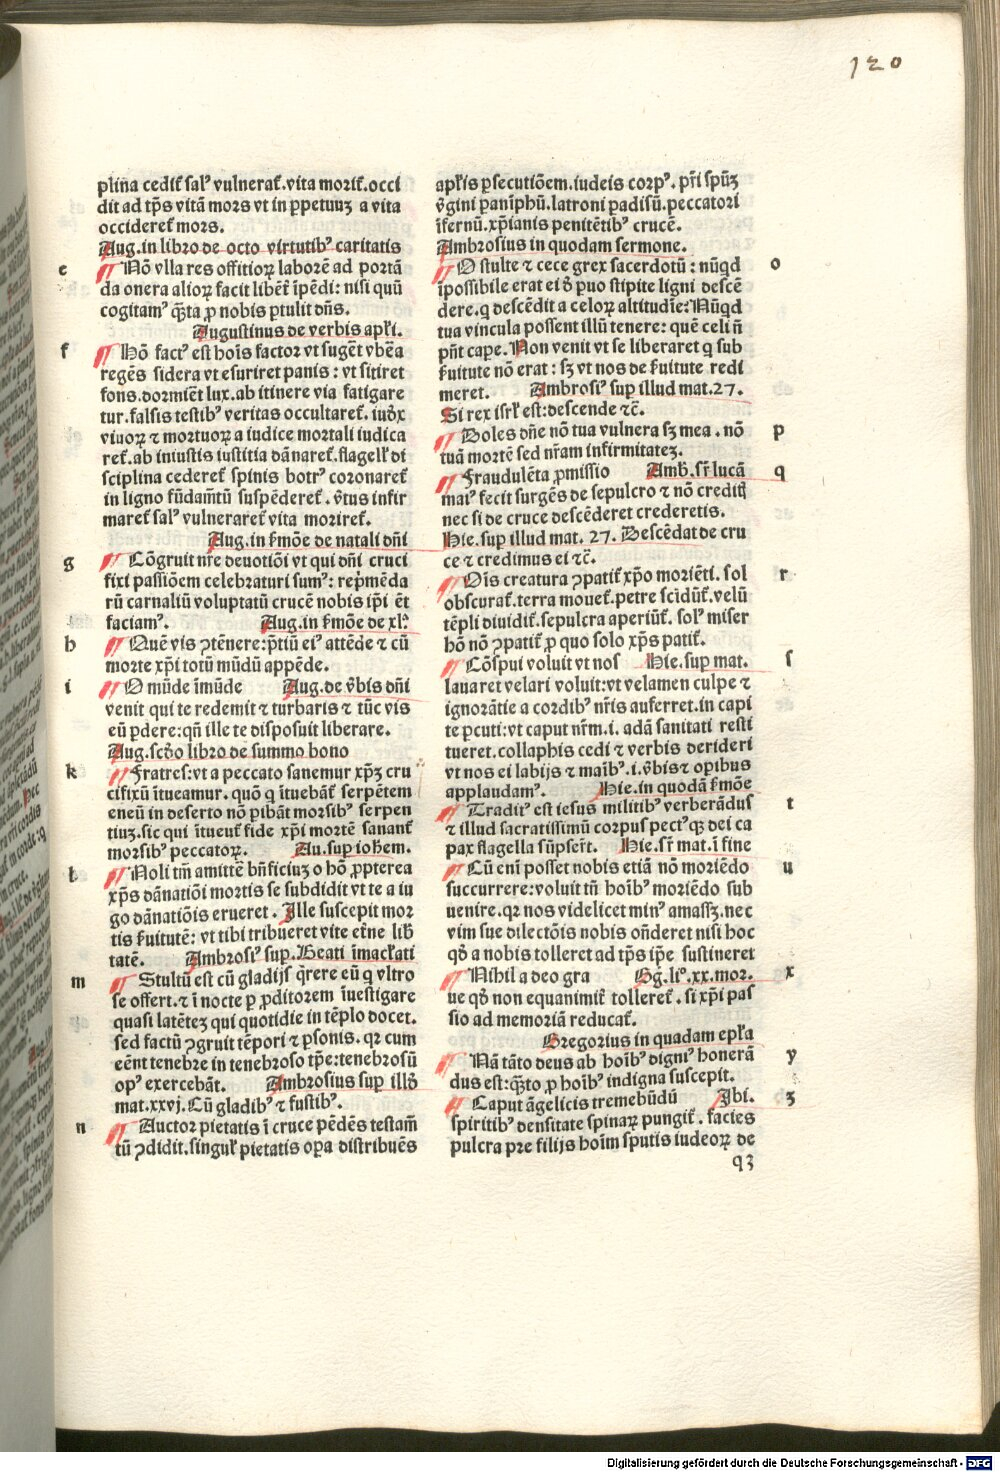 120
plina cedit̃ salꝰ vulnerat̃.vita morit̃.occi
dit ad tp̄s vitā mors vt in ꝑpetuuꝫ a vita
occideret̃ mors.
Aug.in libro de octo virtutibꝰ caritatis
e
Nō vlla res offitioꝝ laborē ad portā
da onera alioꝝ facit liber̃t īpēdi: nisi quū
cogitamꝰ q̄ta ꝓ nobis ꝑtulit dn̄s.
Augustinus de verbis apl̄i.
f
Hō factꝰ est hoīs factor vt suger̃t vbēa
regēs sidera vt esuriret panis: vt sitiret
fons.dormiēt lux.ab itinere via fatigare
tur.falsis testibꝰ veritas occultaret̃.iudx̄
viuoꝝ ⁊ mortuoꝝ a iudice mortali iudica
ret̃.ab iniustis iustitia dānaret̃.flagell̄ di
sciplina cederet̃ spinis botrꝰ coronaret̃
in ligno fūdam̄tū suspēderet̃.v̄tus infir
maret̃ salꝰ vulneraret̃ vita moriret̃.
Aug.in ẜmōe de natali dn̄i
g
Cōgruit nr̄e deuotiōi vt qui dn̄i cruci
fixi passiōem celebraturi sumꝰ: rep̄mēda
rū carnaliū voluptatū crucē nobis ip̄i ēt
faciamꝰ. Aug.in ẜmōe de xl.ꝰ
h
Quē vis ꝯtēnere:p̄tiū eiꝰ attēde ⁊ cū
morte xp̄i totū mūdū appēde.
i
O mūde īmūde Aug.de v̄bis dn̄i
venit qui te redemit ⁊ turbaris ⁊ tūc vis
eū ꝑdere:qn̄ ille te disposuit liberare.
Aug.scd̄o libro de summo bono
k
Fratres:vt a peccato sanemur xp̄ꝫ cru
cifixū ītueamur. quō q ītuebāt̃ serpētem
eneū in deserto nō ꝑibāt morsibꝰ serpen
tiuꝫ.sic qui ītuent̃ fide xp̄i mortē sanant̃
morsibꝰ peccatoꝝ. Au.sup iohem.
l
Noli tm̄ amittē bn̄ficiuꝫ o hō ꝓpterea
xp̄s dānatiōi mortis se subdidit vt te a iu
go dānatiōis erueret. Ille suscepit mor
tis ẜuitutē: vt tibi tribueret vite etn̄e lib̄
tatē. Ambrosiꝰ sup.Beati īmacl̄ati
m
Stultū est cū gladijs q̄rere eū q vltro
se offert.⁊ ī nocte ꝑ ꝓditorem īuestigare
quasi latētez qui quotidie in tēplo docet.
sed factū ꝯgruit tēpori ⁊ ꝑsonis. qꝛ cum
eēnt tenebre in tenebroso tp̄e:tenebrosū
opꝰ exercebāt. Ambrosius sup illd̄
mat.xxvj.Cū gladibꝰ ⁊ fustibꝰ.
n
Auctor pietatis ī cruce pēdēs testam̄
tū ꝯdidit.singul̄ pietatis oꝑa distribuēs
apl̄is ꝑsecutiōem.iudeis corpꝰ. pr̄i spūꝫ
v̄gini paniphū.latroni padisū.peccatori
īfernū.xp̄ianis penitētibꝰ crucē.
Ambrosius in quodam sermone.
O stulte ⁊ cece grex sacerdotū: nūqd
o
īpossibile erat ei d̄ ꝑuo stipite ligni descē
dere.q descēdit a celoꝝ altitudīe:Nūqd
tua vincula possent illū tenere: quē celi n̄
pn̄t cape.Non venit vt se liberaret q sub
ẜuitute nō erat: sꝫ vt nos de ẜuitute redi
meret. Ambrosiꝰ sup illud mat.27.
Si rex isrl̄ est:descende ⁊c̄.
Doles dn̄e nō tua vulnera sꝫ mea. nō
p
tuā mortē sed nr̄am infirmitateꝫ.
Fraudulēta ꝓmissio Amb̄.sr̄ lucā
q
maiꝰ fecit surgēs de sepulcro ⁊ nō creditj
nec si de cruce descēderet crederetis.
Hie.sup illud mat. 27. Descēdat de cru
ce ⁊ credimus ei ⁊c̄.
Oīs creatura ꝯpatit̃ xp̄o moriēti. sol
r
obscurat̃.terra mouet̃.petre scīdūt̃.velū
tēpli diuidit̃.sepulcra aperiūt̃. solꝰ miser
hō nō ꝯpatit̃ ꝓ quo solo xp̄s patit̃.
Cōspui voluit vt nos Hie.sup mat.
s
lauaret velari voluit:vt velamen culpe ⁊
ignorātie a cordibꝰ nr̄is auferret.in capi
te ꝑcuti:vt caput nr̄m.i. adā sanitati resti
tueret.collaphis cedi ⁊ verbis derideri
vt nos ei labijs ⁊ maībꝰ.i.v̄bis ⁊ oꝑibus
applaudamꝰ. Hie.in quodā ẜmōe
Traditꝰ est iesus militibꝰ verberādus
t
⁊ illud sacratissimū corpus pectꝰqꝫ dei ca
pax flagella sūpser̄t. Hie.sr̄ mat.ī fine
Cū enī posset nobis etiā nō moriēdo
u
succurrere:voluit tn̄ hoībꝰ moriēdo sub
uenire.qꝛ nos videlicet minꝰ amassꝫ.nec
vim sue dilectōis nobis on̄deret nisi hoc
qd̄ a nobis tolleret ad tp̄s ip̄e sustineret
Nihil a deo gra Gg.li°.xx.mor.
x
ue qd̄ non equanimit̃ tolleret̃. si xp̄i pas
sio ad memoriā reducat̃.
Gregorius in quadam epl̄a
Nā tāto deus ab hoībꝰ dignꝰ honerā
y
dus est:q̄to ꝓ hoībꝰ indigna suscepit.
Caput āgelicis tremebūdū Ibi.
ꝫ
spiritibꝰ densitate spinaꝝ pungit̃. facies
pulcra pre filijs hoīm sputis iudeoꝝ de
q3
Digitalisierung gefördert durch die Deutsche Forschungsgemeinschaft - DFG